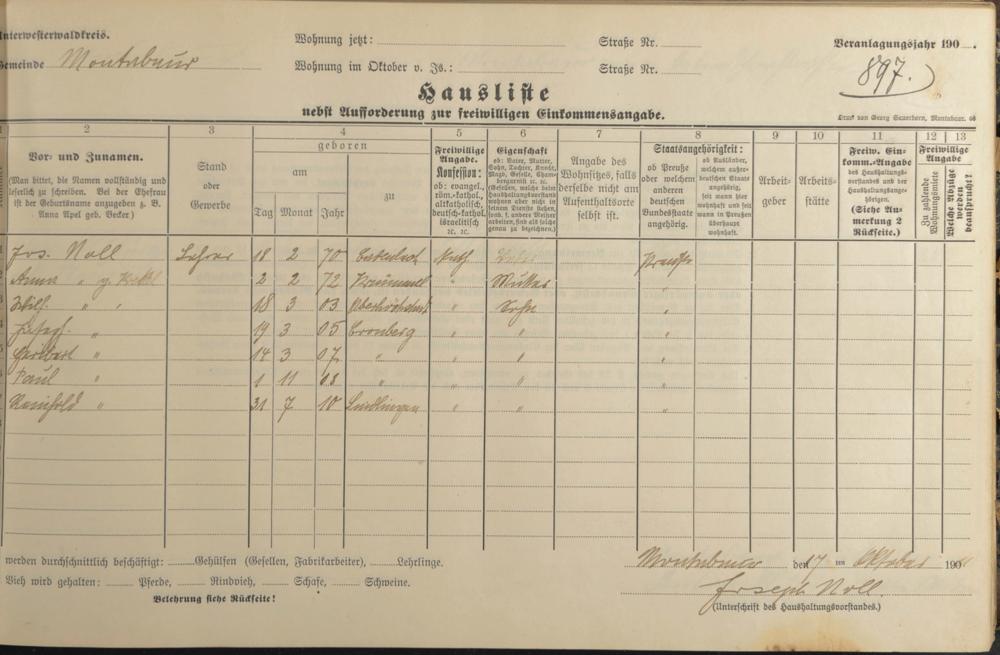 Unterwesterwaldkreis.
Gemeinde Montabaur
Wohnung jetzt: Straße Nr.
Wohnung im Oktober v. Js.: Straße Nr.
Veranlagungsjahr 190
897.
Hausliste
nebst Aufforderung zur freiwilligen Einkommensangabe.
Druck von Georg Sauerborn, Montabaur.
1 2 3 4 5 6 7 8 9 10 11 12 13
Vor- und Zunamen.
(Man bittet, die Namen vollständig und
leserlich zu schreiben. Bei der Ehefrau
ist der Geburtsname anzugeben z. B.
Anna Apel geb. Becker)
Stand
oder
Gewerbe
geboren
am
zu
Tag Monat Jahr
Freiwillige
Angabe.
Konfession:
ob: evangel.,
röm.-kathol.,
altkatholisch,
deutsch-kathol.
israelitisch
ec. ec.
Eigenschaft
ob: Vater, Mutter,
Sohn, Tochter, Knecht,
Magd, Geselle, Cham-
bergarnist ec. ec.
(Gesellen, welche beim
Haushaltungsvorstand
wohnen aber nicht in
seinen Diensten stehen,
sond. f. andere Meister
arbeiten, sind als solche
genau zu bezeichnen.)
Angabe des
Wohnsitzes, falls
derselbe nicht am
Aufenthaltsorte
selbst ist.
Staatsangehörigkeit:
ob Preuße
oder welchem
anderen
deutschen
Bundesstaate
angehörig.
ob Ausländer,
welchem außer-
deutschen Staate
angehörig,
seit wann hier
wohnhaft und seit
wann in Preußen
überhaupt
wohnhaft.
Arbeit-
geber
Arbeits-
stätte
Freiw. Ein-
komm.-Angabe
des Haushaltungs-
vorstandes und der
Haushaltungsange-
hörigen.
(Siehe An-
merkung 2
Rückseite.)
Freiwillige
Angabe
Zu zahlende
Wohnungsmiete
Welche Abzüge
werden
beansprucht?
Jos. Noll Lehrer 18 2 70 Kath. Vater Preuße
Anna " g. 2 2 72 " Mutter "
Wilh. " 18 3 03 Oberhöchstadt " Sohn "
Joseph " 19 3 05 Cronberg " " "
" 14 3 07 " " " "
Paul " 1 11 08 " " " "
Reinhold " 31 7 10 Sindlingen " " "
werden durchschnittlich beschäftigt: Gehülfen (Gesellen, Fabrikarbeiter), Lehrlinge.
Vieh wird gehalten: Pferde, Rindvieh, Schafe, Schweine.
Belehrung siehe Rückseite!
Montabaur den 17 ten Oktober 190
Joseph Noll.
(Unterschrift des Haushaltungsvorstandes.)